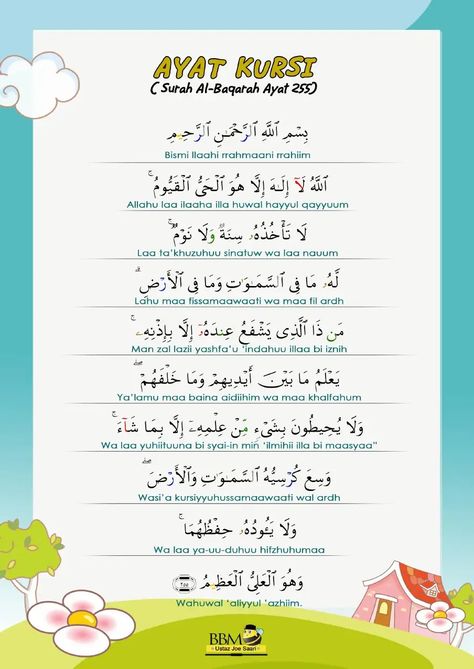 AYAT KURSI
( Surah Al-Baqarah Ayat 255)
بِسْمِ اللَّهِ الرَّحْمَٰنِ الرَّحِيمِ
Bismi llaahi rrahmaani rrahiim
اللَّهُ لَآ إِلَٰهَ إِلَّا هُوَ الْحَيُّ الْقَيُّومُ ۚ
Allahu laa ilaaha illa huwal hayyul qayyuum
لَا تَأْخُذُهُۥ سِنَةٌ وَلَا نَوْمٌ ۚ
Laa ta'khuzuhuu sinatuw wa laa nauum
لَّهُۥ مَا فِي السَّمَٰوَٰتِ وَمَا فِي الْأَرْضِ ۗ
Lahu maa fissamaawaati wa maa fil ardh
مَن ذَا الَّذِي يَشْفَعُ عِندَهُۥٓ إِلَّا بِإِذْنِهِۦ ۚ
Man zal lazii yashfa'u 'indahuu illaa bi iznih
يَعْلَمُ مَا بَيْنَ أَيْدِيهِمْ وَمَا خَلْفَهُمْ ۖ
Ya'lamu maa baina aidiihim wa maa khalfahum
وَلَا يُحِيطُونَ بِشَيْءٍ مِّنْ عِلْمِهِۦٓ إِلَّا بِمَا شَآءَ ۚ
Wa laa yuhiituuna bi syai-in min 'ilmihii illa bi maasyaa"
وَسِعَ كُرْسِيُّهُ السَّمَٰوَٰتِ وَالْأَرْضَ ۖ
Wasi'a kursiyyuhussamaawaati wal ardh
وَلَا يَـُٔودُهُۥ حِفْظُهُمَا ۚ
Wa laa ya-uu-duhuu hifzhuhumaa
وَهُوَ الْعَلِيُّ الْعَظِيمُ ٢٥٥
Wahuwal 'aliyyul 'azhiim.
BBM
Ustaz Joe Saari